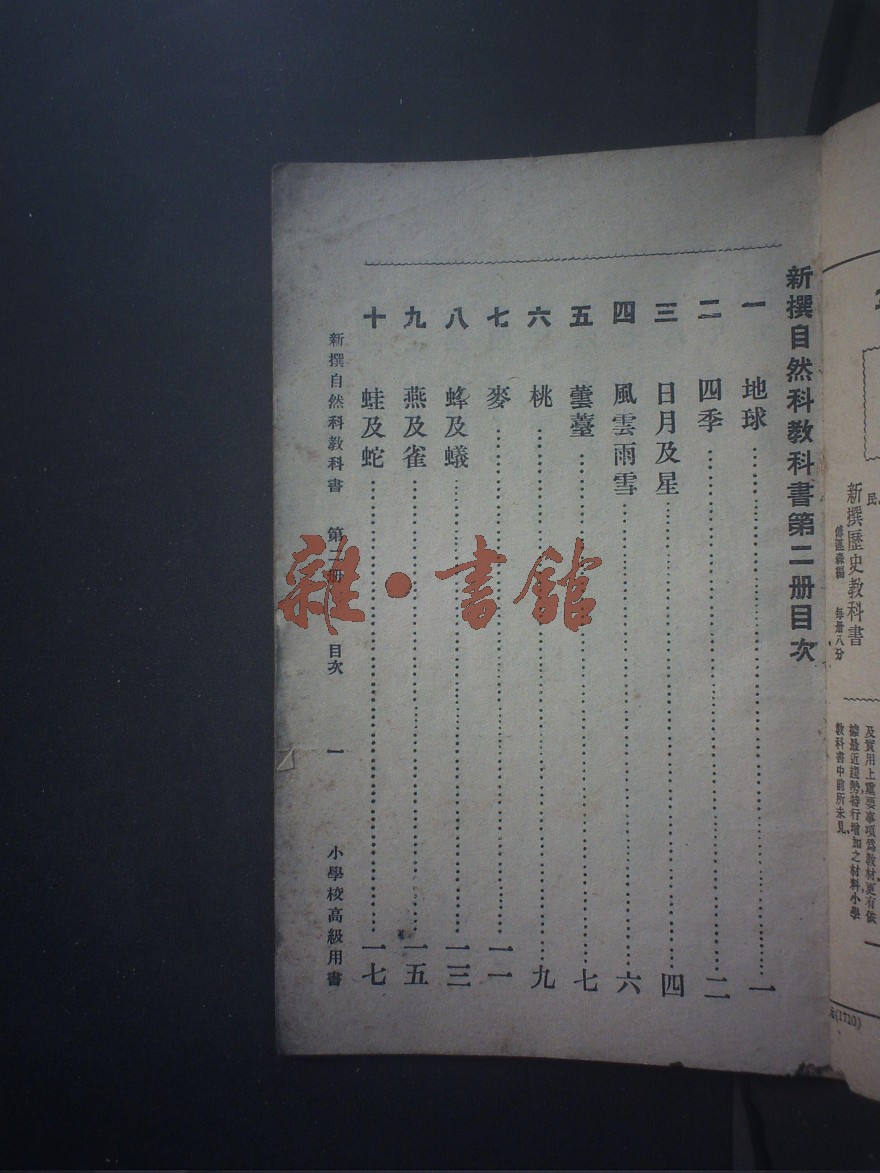 新撰自然科教科書第二册目次
一 地球……一
二 四季……二
三 日月及星……四
四 風雲雨雪……六
五 蕓薹……七
六 桃……九
七 麥……一一
八 蜂及蟻……一三
九 燕及雀……一五
十 蛙及蛇……一七
新撰自然科教科書 第二册 目次 一 小學校高級用書
雜·書館
新撰歷史教科書
每册八分
及實用上重要事項爲教材,更有依
據最近趨勢特行增加之材料,小學
教科書中前所未見、
(1710)